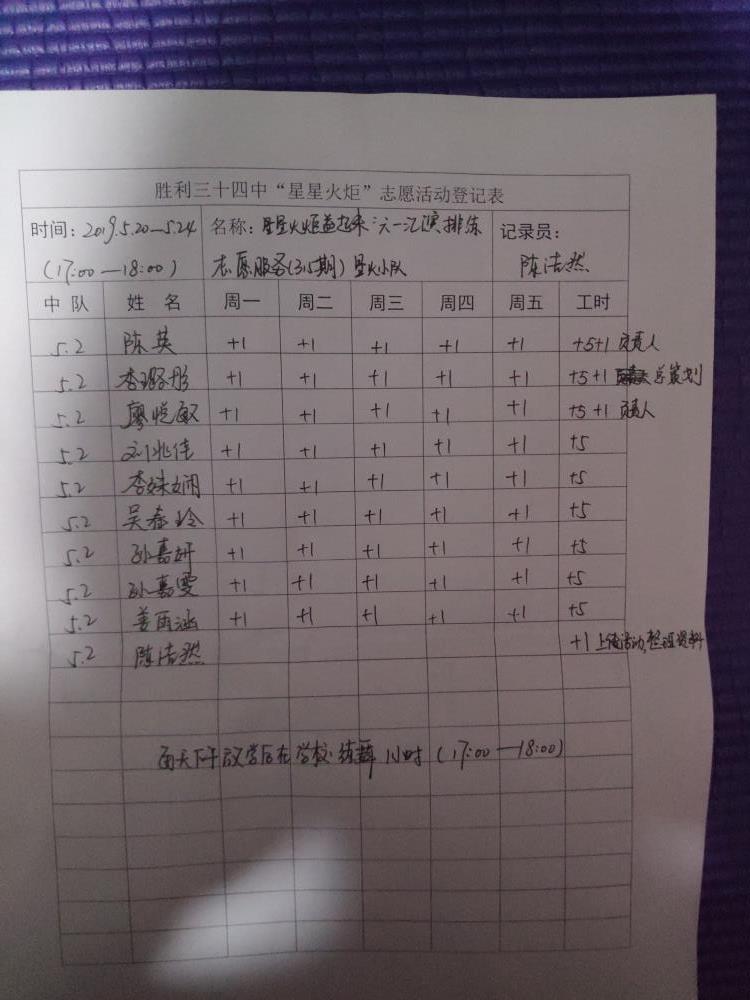 胜利三十四中“星星火炬”志愿活动登记表
时间：2019.5.20—5.24 名称：星星火炬益起来“六一汇演排练 记录员：
(17:00—18:00) 志愿服务(315期) 星火小队 陈浩然
中队 姓名 周一 周二 周三 周四 周五 工时
5.2 陈英 +1 +1 +1 +1 +1 +5+1 负责人
5.2 李璐彤 +1 +1 +1 +1 +1 +5+1 总策划
5.2 廖悦敏 +1 +1 +1 +1 +1 +5+1 负责人
5.2 刘兆佳 +1 +1 +1 +1 +1 +5
5.2 李姝娴 +1 +1 +1 +1 +1 +5
5.2 吴春玲 +1 +1 +1 +1 +1 +5
5.2 孙嘉妍 +1 +1 +1 +1 +1 +5
5.2 孙嘉雯 +1 +1 +1 +1 +1 +5
5.2 姜雨涵 +1 +1 +1 +1 +1 +5
5.2 陈浩然 +1 上传活动,整理资料
每天下午放学后在学校练舞1小时(17:00—18:00)